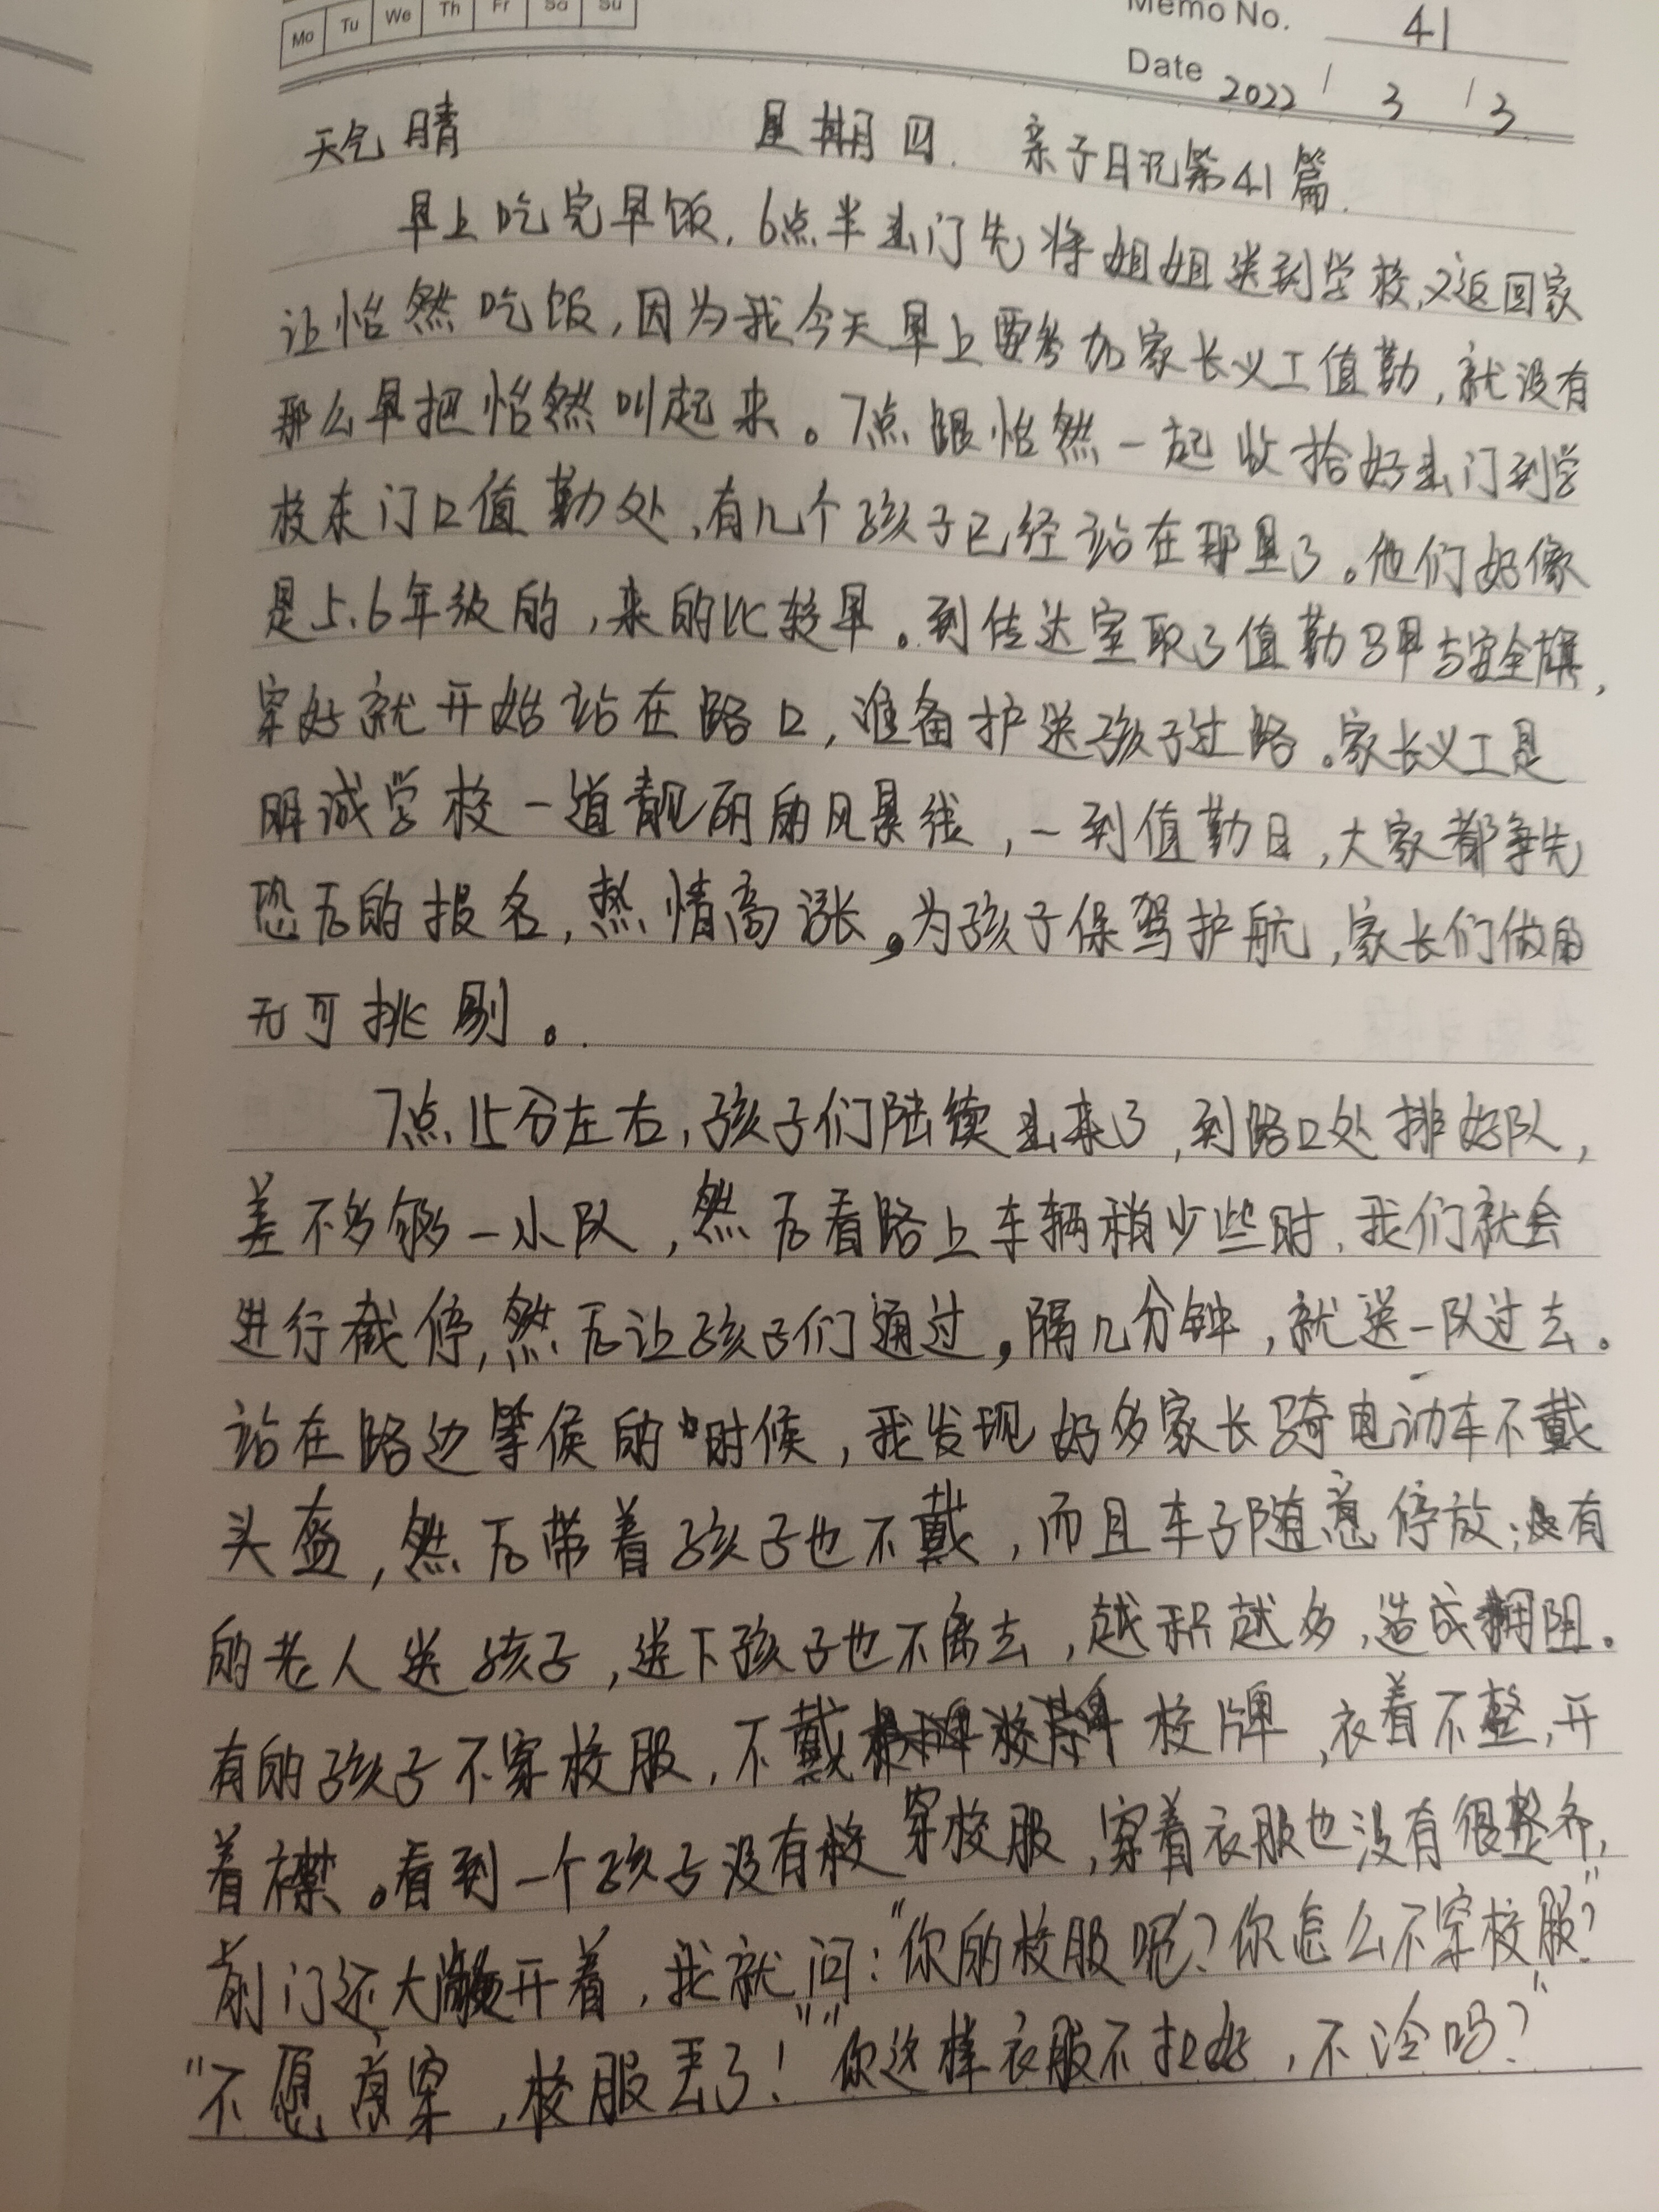 Mo Tu We Th Fr Sa Su
Memo No. 41
Date 2022 / 3 / 3
天气晴 星期四. 亲子日记第41篇.
早上吃完早饭,6点半出门先将姐姐送到学校,又返回家
让怡然吃饭,因为我今天早上要参加家长义工值勤,就没有
那么早把怡然叫起来。7点跟怡然一起收拾好出门到学
校东门口值勤处,有几个孩子已经站在那里了。他们好像
是5.6年级的,来的比较早。到传达室取了值勤马甲与安全旗,
穿好就开始站在路口,准备护送孩子过路。家长义工是
明诚学校一道靓丽的风景线,一到值勤日,大家都争先
恐后的报名,热情高涨,为孩子保驾护航,家长们做的
无可挑剔。
7点15分左右,孩子们陆续出来了,到路口处排好队,
差不多够一小队,然后看路上车辆稍少些时,我们就会
进行截停,然后让孩子们通过,隔几分钟,就送一队过去。
站在路边等候的时候,我发现好多家长骑电动车不戴
头盔,然后带着孩子也不戴,而且车子随意停放;有
的老人送孩子,送下孩子也不离去,越积越多,造成拥阻。
有的孩子不穿校服,不戴校牌,衣着不整,开
着襟。看到一个孩子没有穿校服,穿着衣服也没有很整齐,
前门还大敞开着,我就问:"你的校服呢?你怎么不穿校服?"
"不愿意穿,校服丢了!""你这样衣服不扣好,不冷吗?"